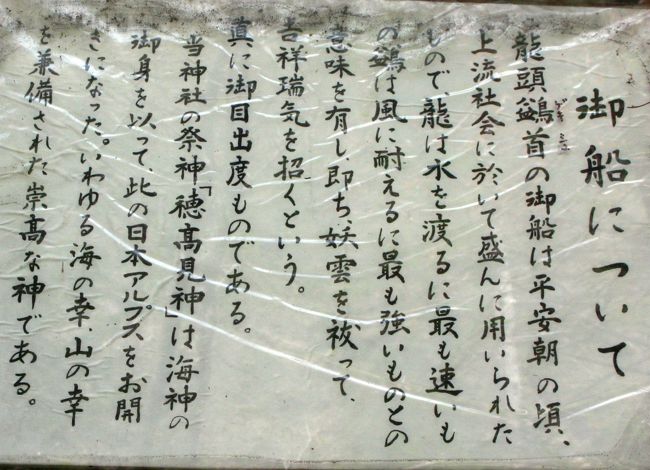 御船について
龍頭鷁首の御船は平安朝の頃、
上流社会に於いて盛んに用いられた
もので、龍は水を渡るに最も速いも
の鷁は風に耐えるに最も強いものとの
意味を有し、即ち、妖雲を祓って、
吉祥瑞気を招くという。
真に御目出度ものである。
当神社の祭神「穂高見神」は海神の
御身を以って、此の日本アルプスをお開
きになった。いわゆる海の幸、山の幸
を兼備された崇高な神である。